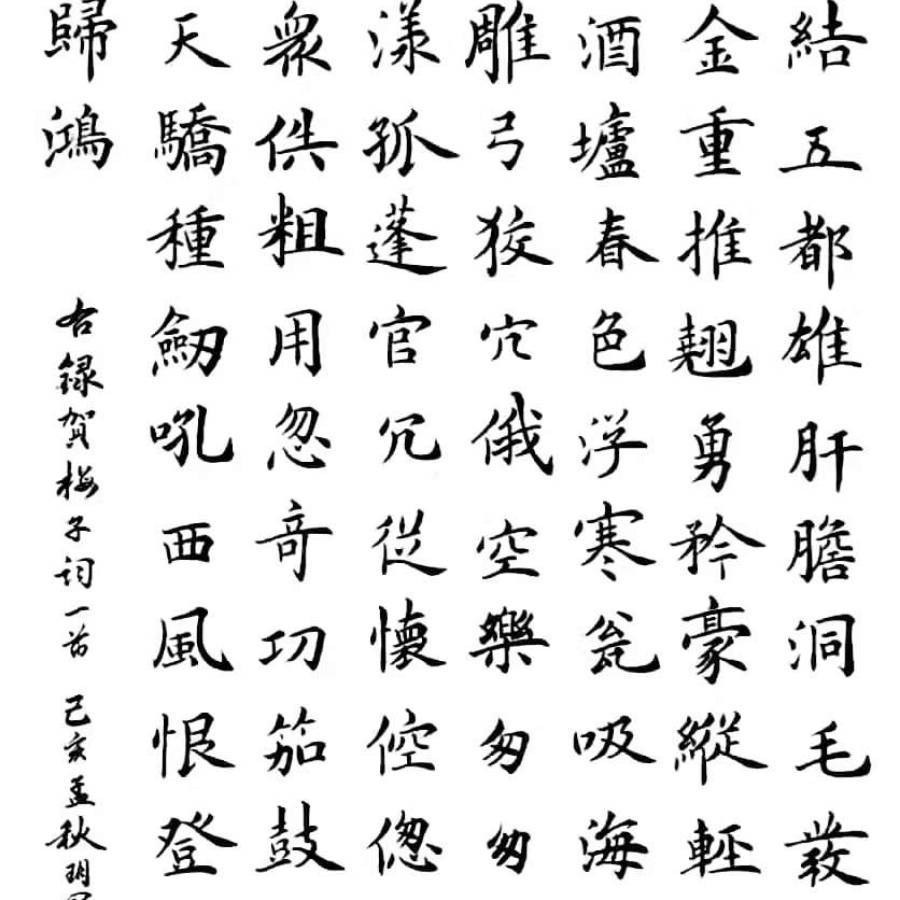 結五都雄肝膽洞毛發
金重推翹勇矜豪縱輕
酒壚春色浮寒瓮吸海
雕弓狡穴俄空樂匆匆
漾孤蓬官冗從懷倥偬
衆供粗用忽奇功笳鼓
天驕種劒吼西風恨登
歸鴻
右録賀梅子詞一首 己亥孟秋玥